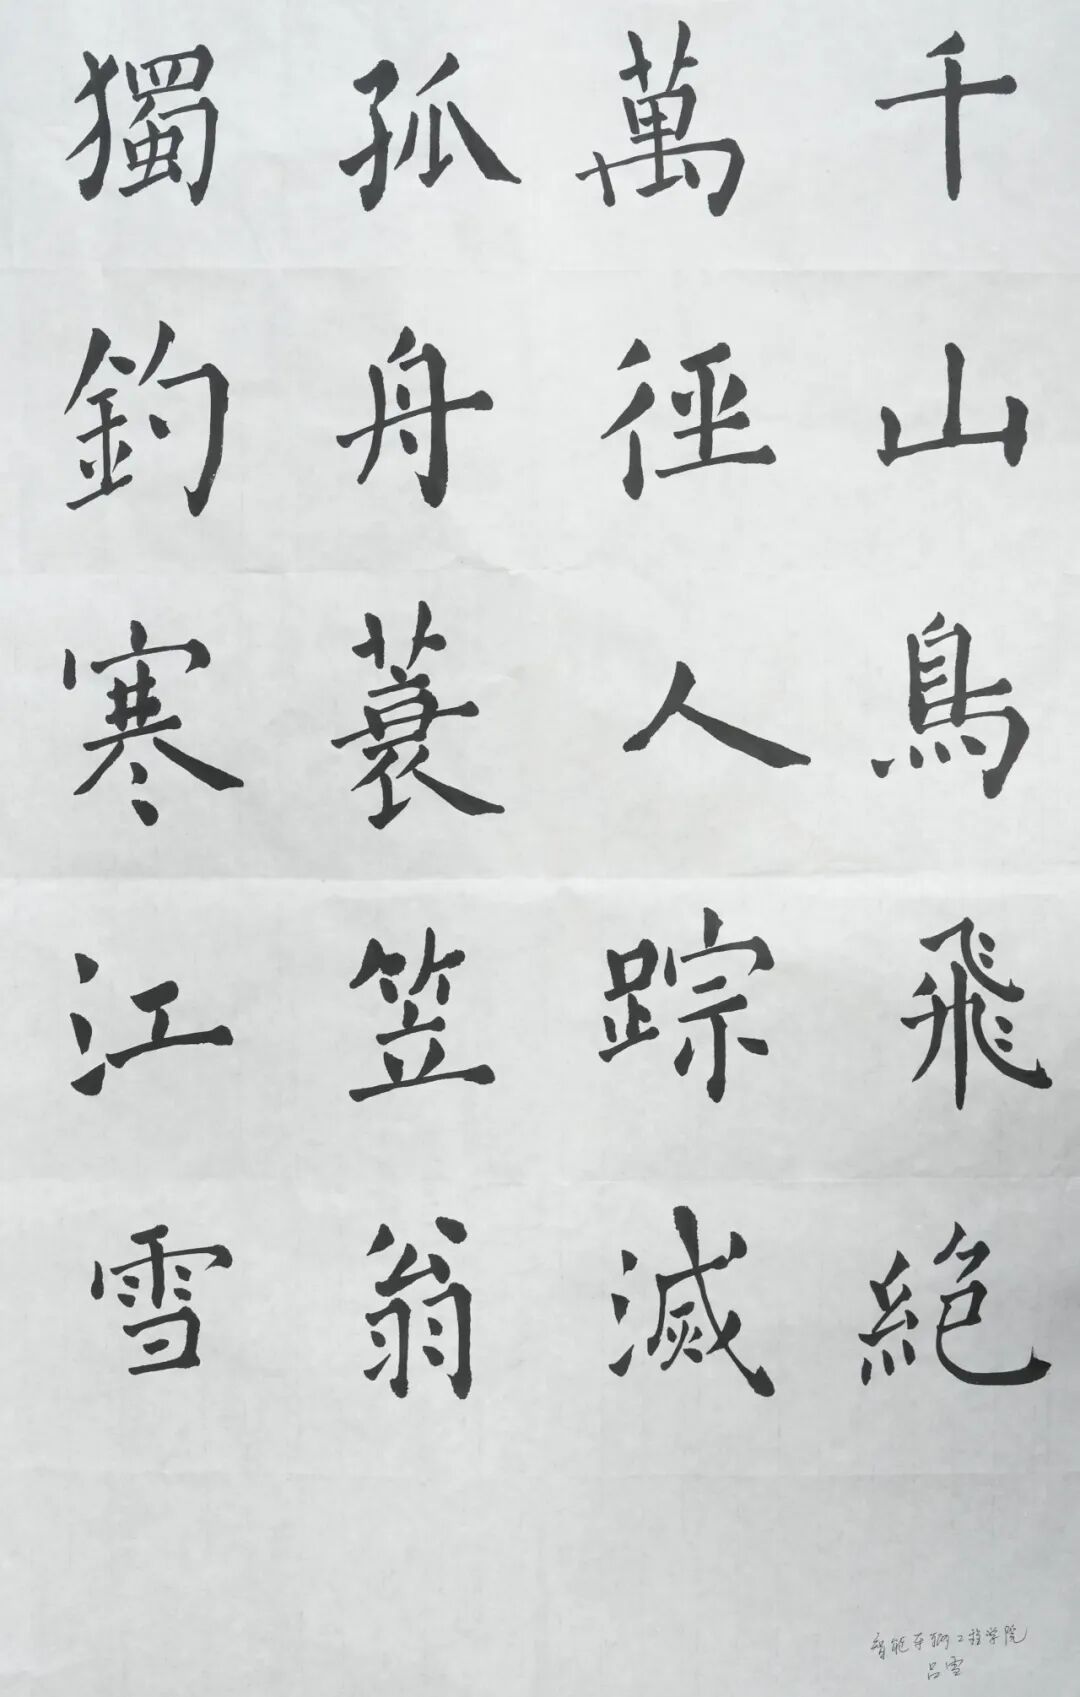 千山鳥飛絕
萬徑人踪滅
孤舟蓑笠翁
獨釣寒江雪
智能车辆工程学院
吕雪